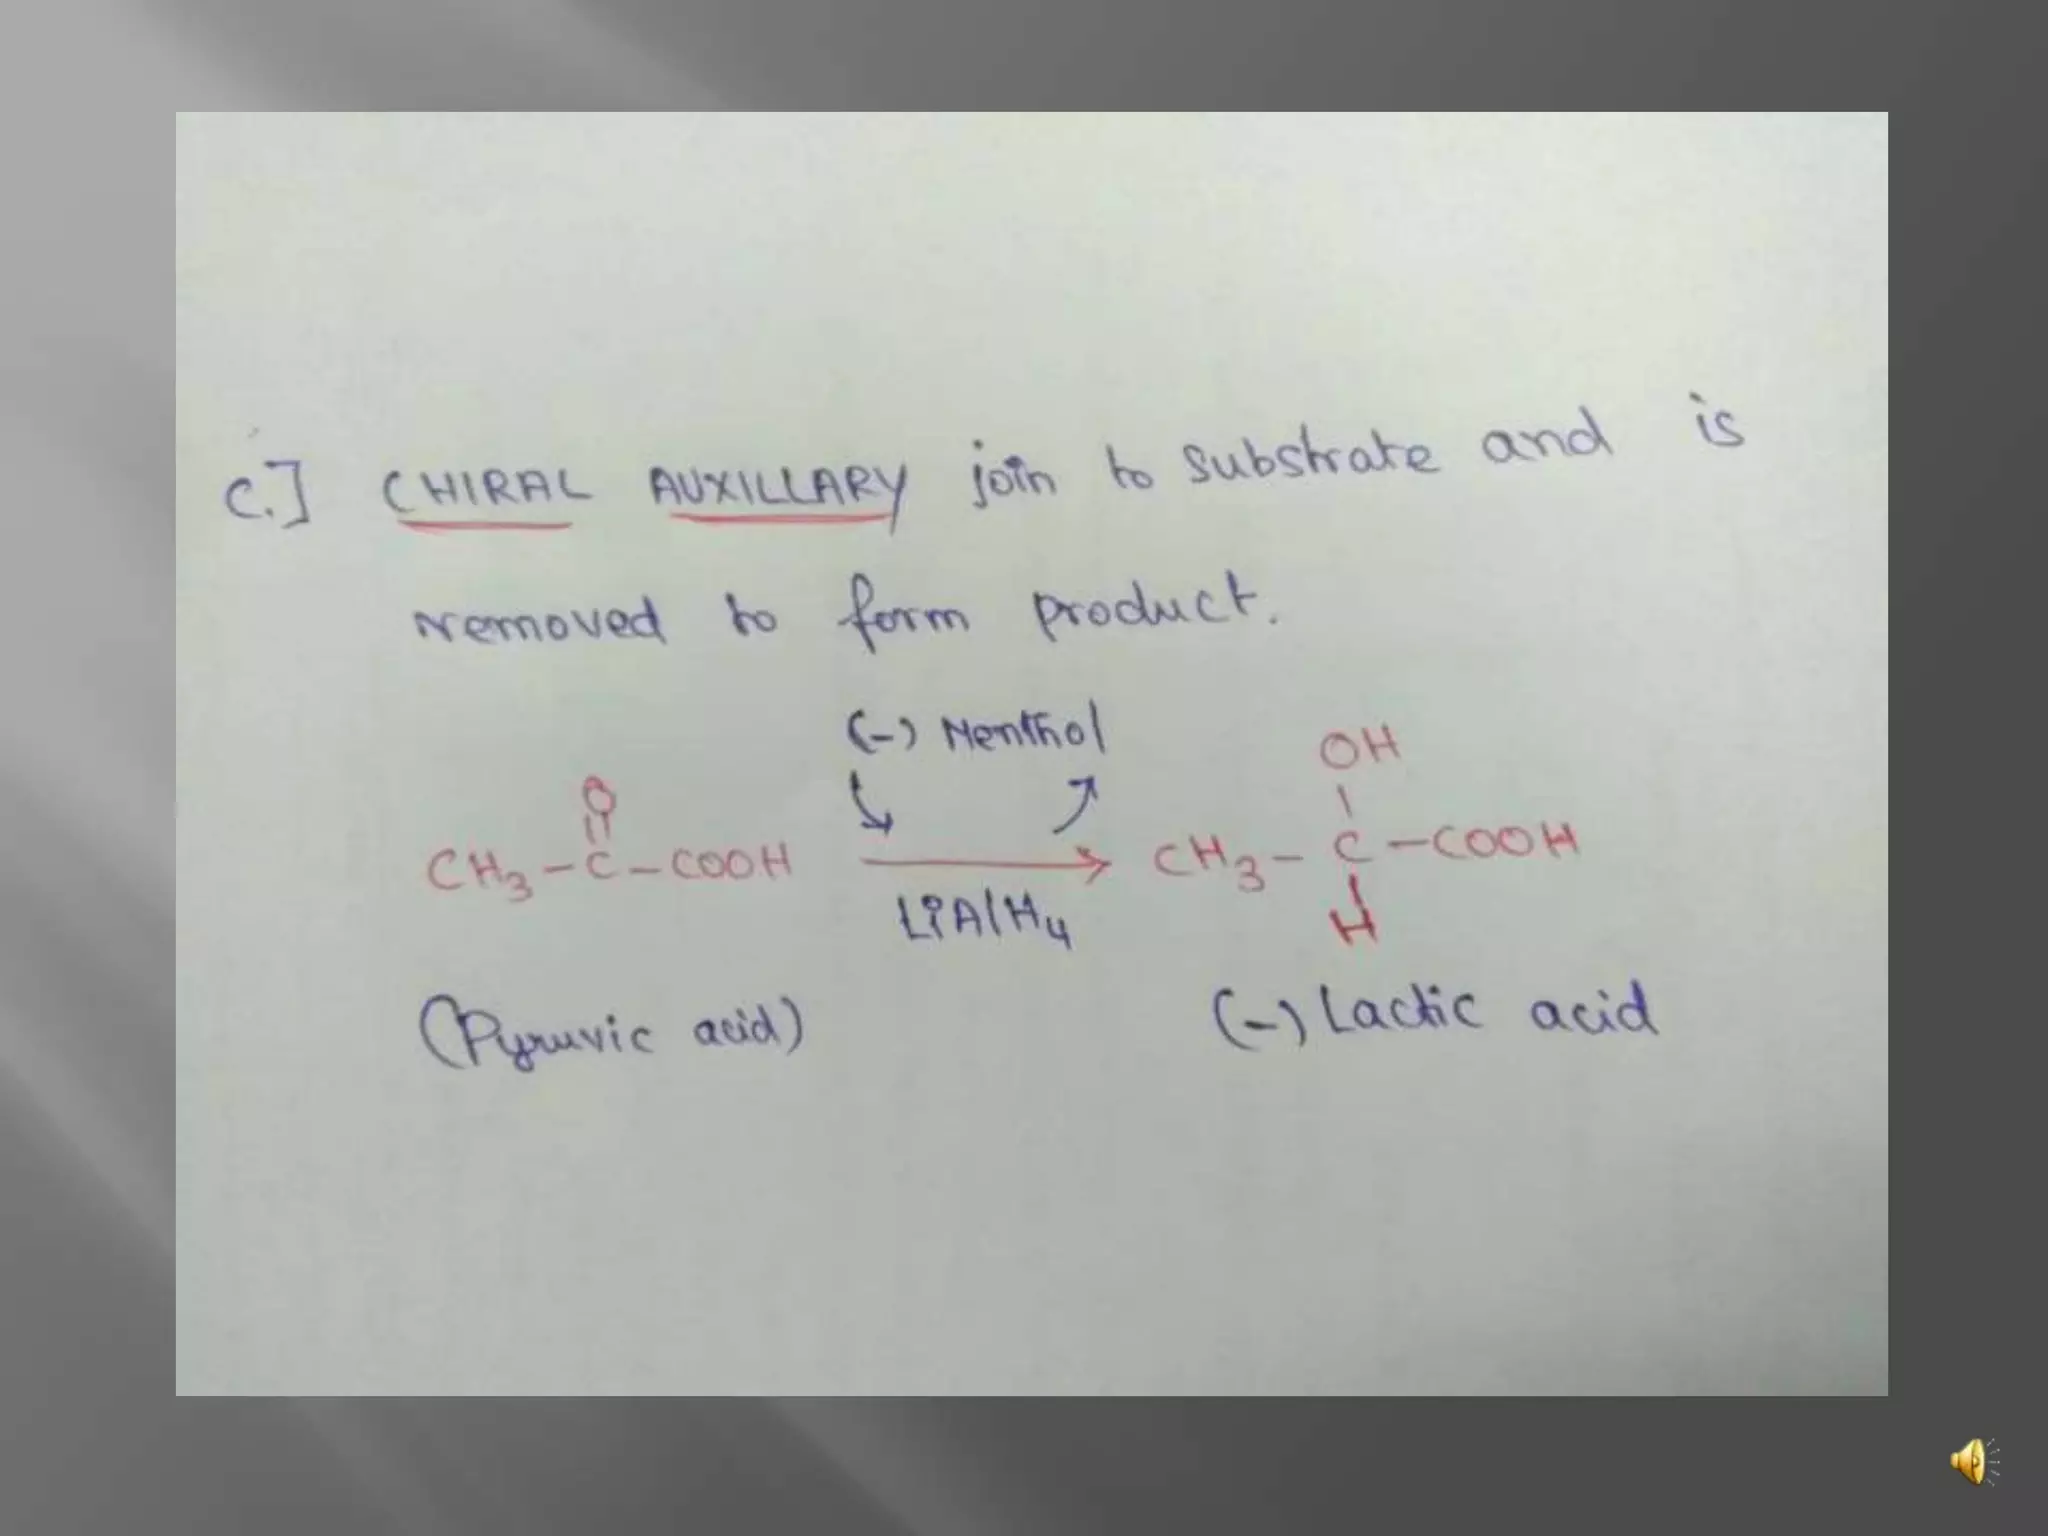 C.] CHIRAL AUXILLARY join to substrate and is
removed to form product.
(-) Menthol
OH
O
CH3-C-COOH
CH3-C-COOH
LiAlH4
H
(Pyruvic acid)
(-) Lactic acid